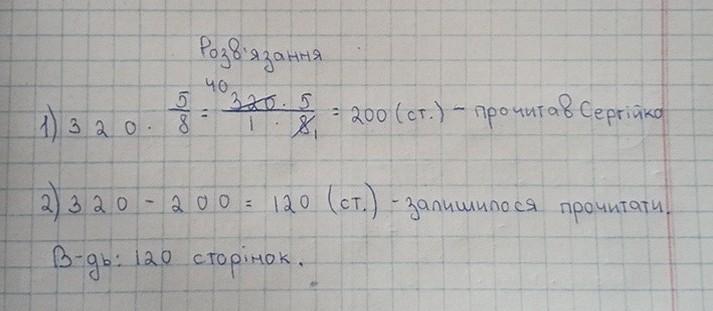 Розв'язання
1) 320 · 5/8 = 40 320 · 5 / 1 · 8 1 = 200 (ст.) - прочитав Сергійко
2) 320 - 200 = 120 (ст.) - залишилося прочитати.
В-дь: 120 сторінок.